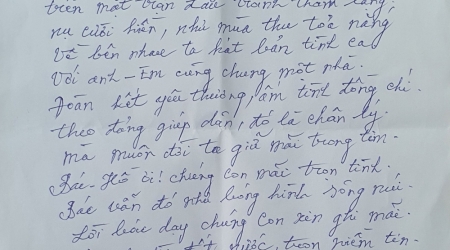 trên một trận đấu tranh thầm lặng.
nụ cười hiền, như mùa thu toả nắng
Về bên nhau ta hát bản tình ca
Với anh - Em cùng chung một nhà.
Đoàn kết yêu thương, ấm tình đồng chí.
theo đảng giúp dân, đó là chân lý.
mà muôn đời ta giữ mãi trong tim.
Bác - Hồ ơi! chúng con mãi trọn tình.
Bác vẫn đó như bóng hình sông núi.
Lời bác dạy chúng con xin ghi mãi.
đất nước, trọn niềm tin.